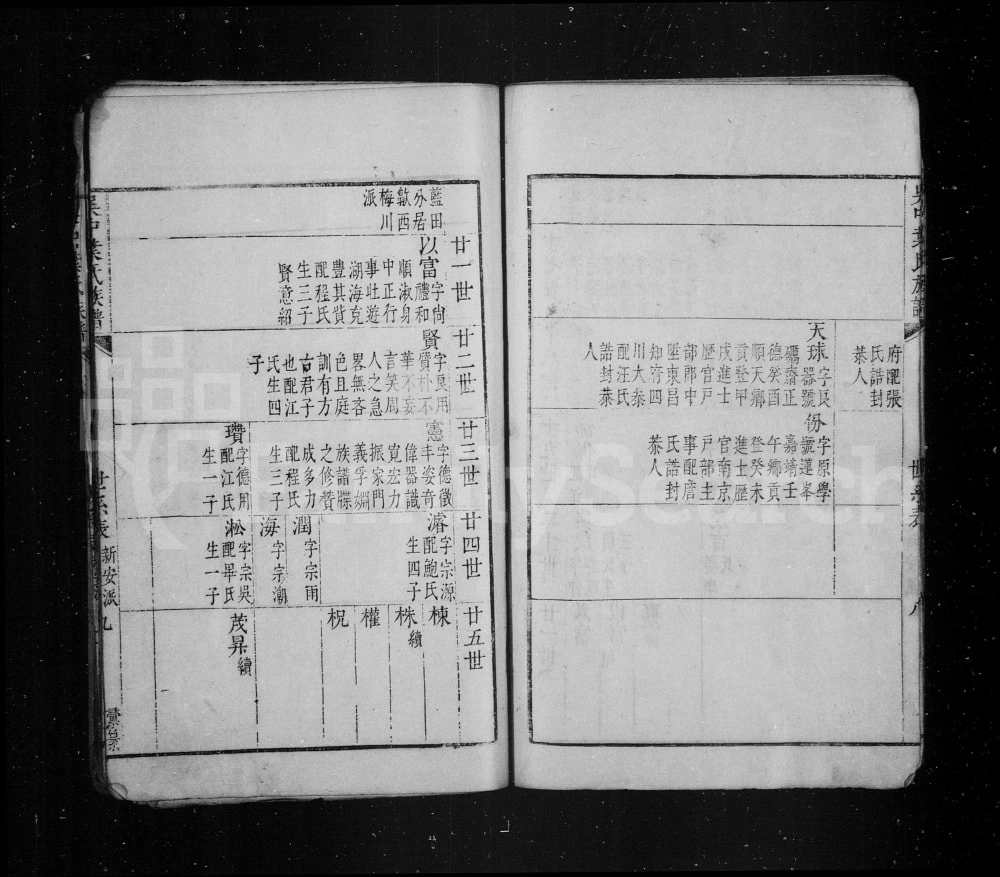 吳中葉氏族譜
世系表
八
府配張
氏誥封
恭人
天球
字良
器號
礪齋正
德癸酉
順天鄉
貢登甲
戌進士
歷官戶
部郎中
陞東昌
知府四
川大泰
配汪氏
誥封恭
人
份
字原學
號蓮峯
嘉靖壬
午鄉貢
登癸未
進士歷
官南京
戶部主
事配詹
氏誥封
恭人
藍田
分居
歙西
梅川
派
廿一世
以富
字尙
禮和
順淑身
中正行
事壯遊
湖海克
豐其貲
配程氏
生三子
賢意紹
廿二世
賢
字良用
質朴不
華不妄
言笑周
人之急
畧無吝
色且庭
訓有方
古君子
也配江
氏生四
子
廿三世
憲
字德徵
丰姿奇
偉器識
寬宏力
振家門
義孚婣
族譜牒
之修贊
成多力
配程氏
生三子
瓚
字德用
配江氏
生一子
廿四世
濬
字宗源
配鮑氏
生四子
潤
字宗雨
海
字宗潮
淞
字宗吳
配畢氏
生一子
廿五世
棟
株續
權
柷
茂昇續
吳中葉氏族譜
世系表
新安派
九